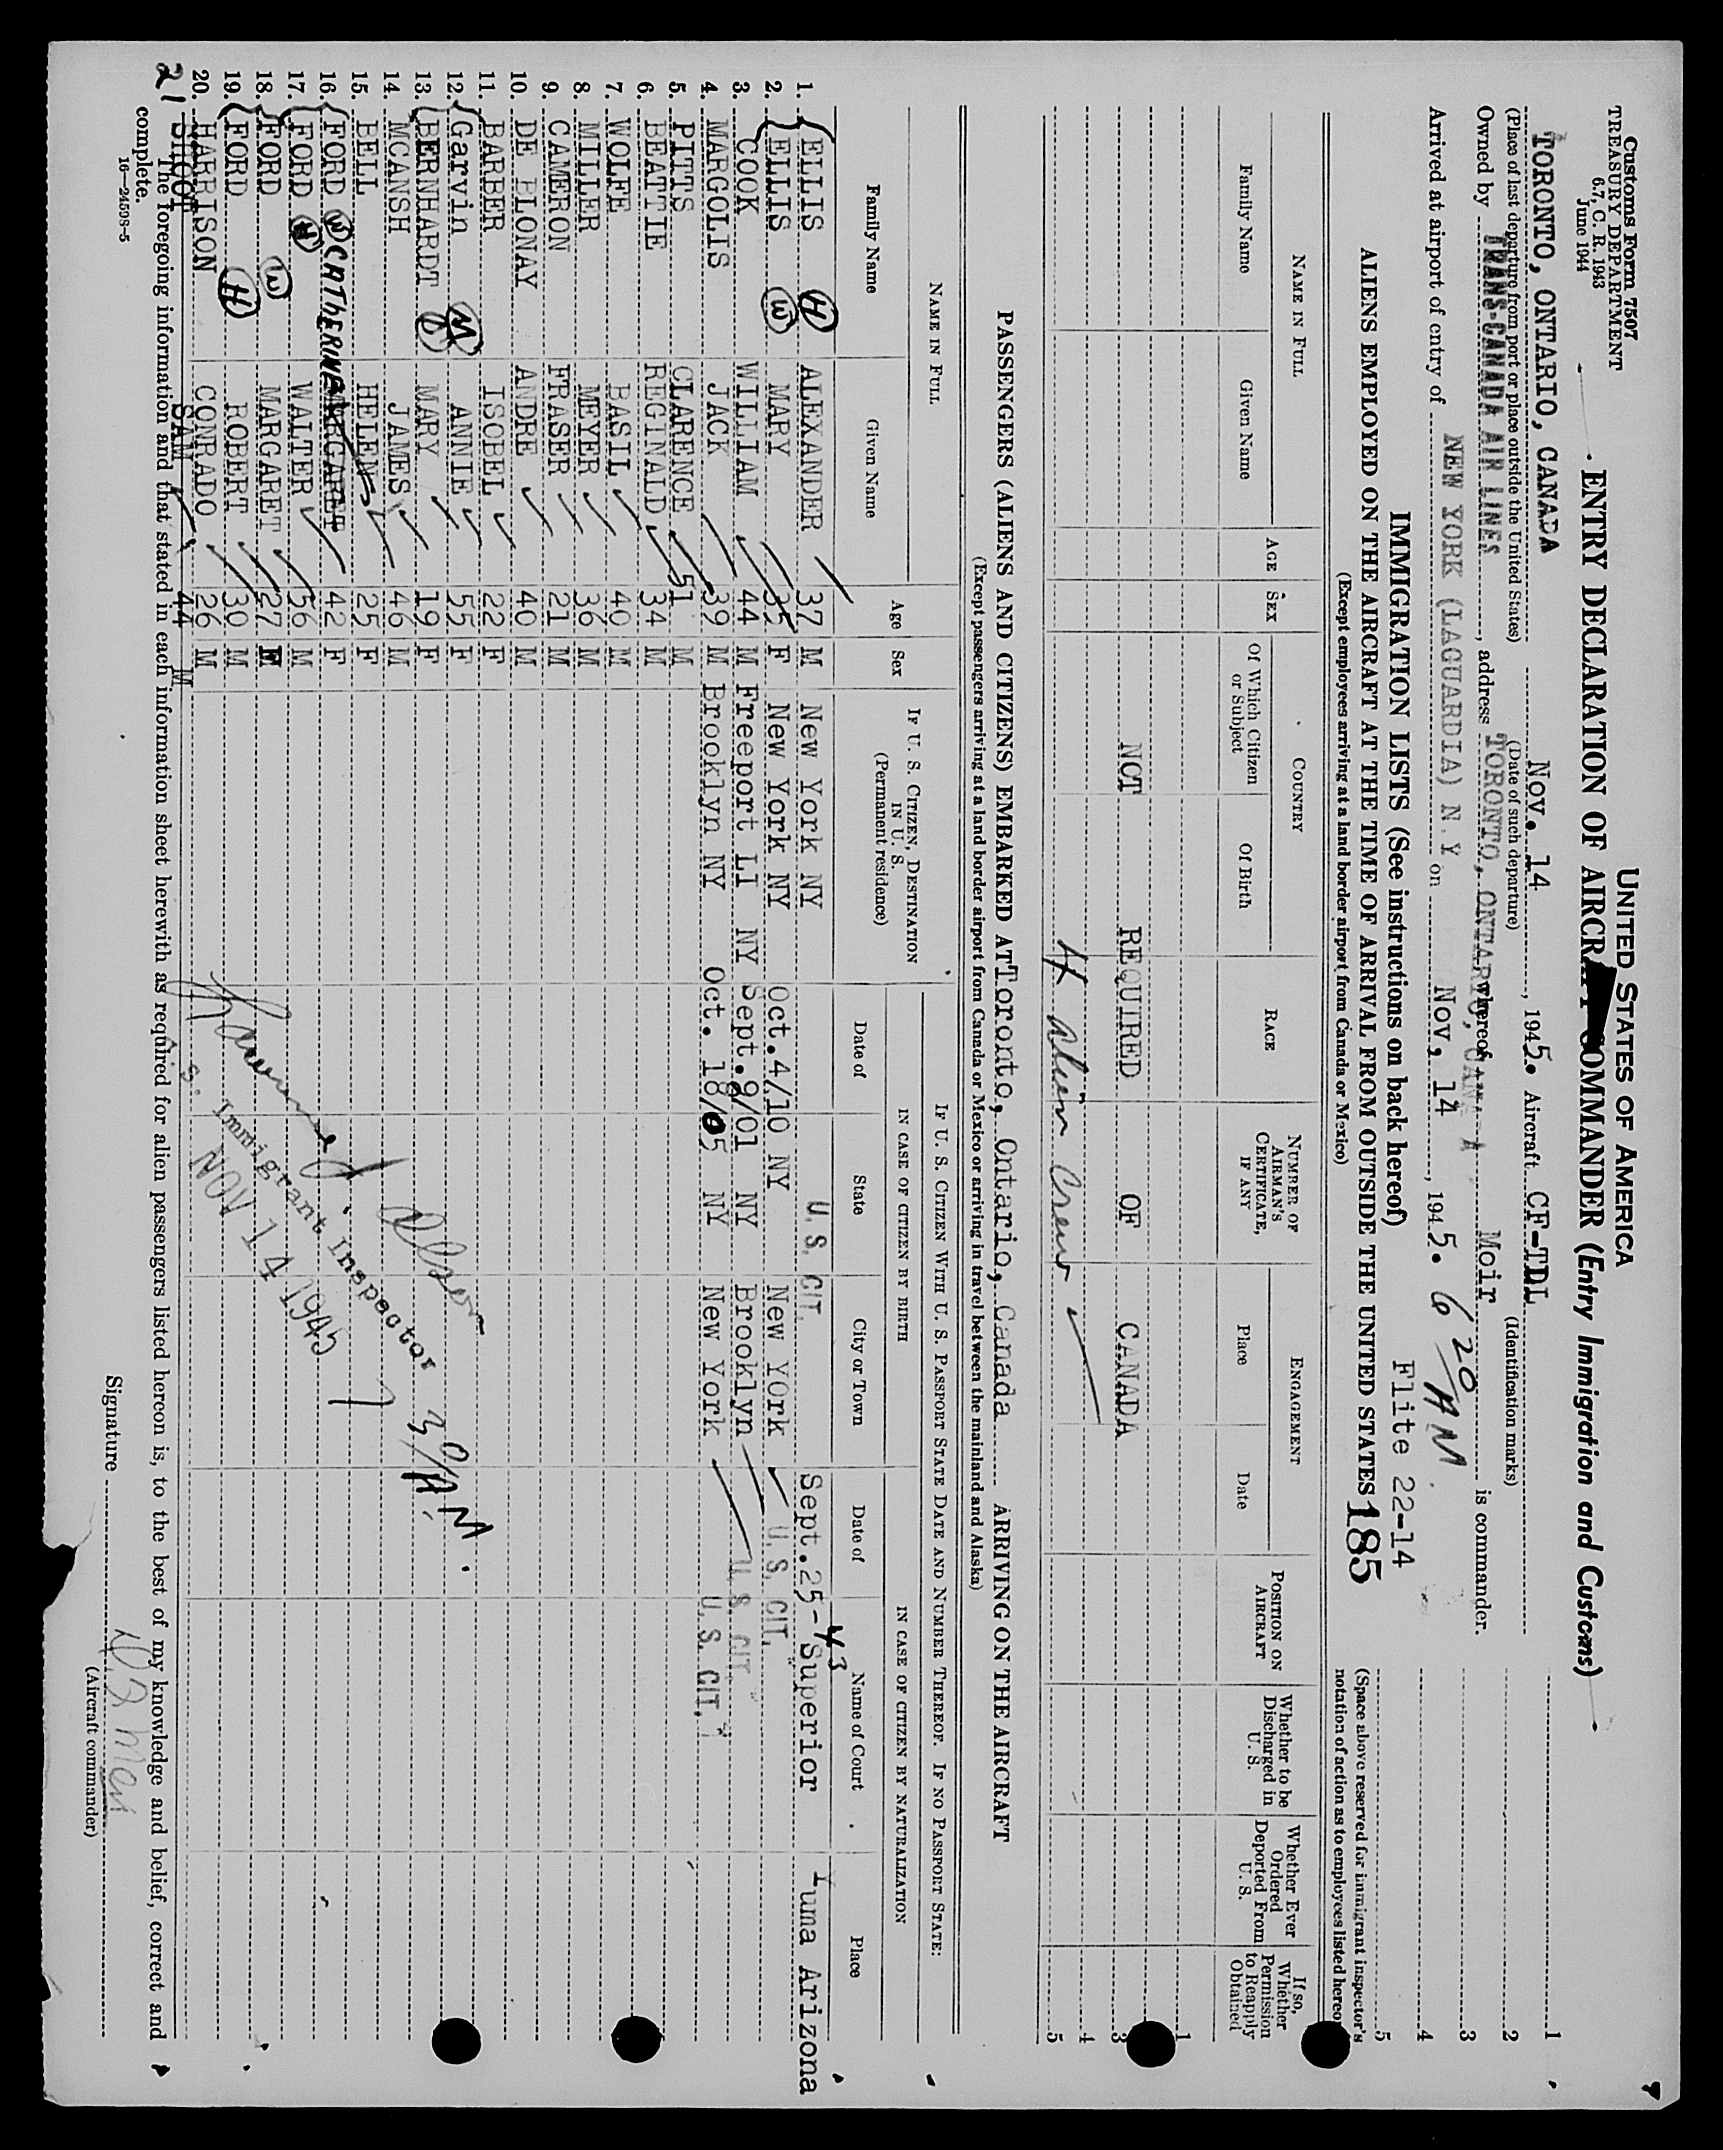 Customs Form 7507
TREASURY DEPARTMENT
6.7, C. R. 1943
June 1944
UNITED STATES OF AMERICA
ENTRY DECLARATION OF AIRCRAFT COMMANDER (Entry Immigration and Customs)
TORONTO, ONTARIO, CANADA Nov. 14, 1945. Aircraft CF-TDL
(Place of last departure from port or place outside the United States) (Date of such departure) (Identification marks)
Owned by TRANS-CANADA AIR LINES, address TORONTO, ONTARIO, CANADA whereof Moir is commander.
Arrived at airport of entry of NEW YORK (LAGUARDIA) N.Y. on Nov, 14, 1945. 6 20/AM
Flite 22-14
IMMIGRATION LISTS (See instructions on back hereof)
ALIENS EMPLOYED ON THE AIRCRAFT AT THE TIME OF ARRIVAL FROM OUTSIDE THE UNITED STATES 185
(Except employees arriving at a land border airport from Canada or Mexico)
1
2
3
4
5
(Space above reserved for immigrant inspector's
notation of action as to employees listed hereon
NAME IN FULL COUNTRY RACE NUMBER OF AIRMAN'S CERTIFICATE, IF ANY ENGAGEMENT POSITION ON AIRCRAFT Whether to be Discharged in U. S. Whether Ever Ordered Deported From U. S. If so, Whether Permission to Reapply Obtained
Family Name Given Name AGE SEX Of Which Citizen or Subject Of Birth Place Date
1
NOT REQUIRED OF CANADA
3
4
4 Alien Crew
5
PASSENGERS (ALIENS AND CITIZENS) EMBARKED AT Toronto, Ontario, Canada ARRIVING ON THE AIRCRAFT
(Except passengers arriving at a land border airport from Canada or Mexico or arriving in travel between the mainland and Alaska)
NAME IN FULL Age Sex IF U. S. CITIZEN, DESTINATION IN U. S. (Permanent residence) IF U. S. CITIZEN WITH U. S. PASSPORT STATE DATE AND NUMBER THEREOF. IF NO PASSPORT STATE:
IN CASE OF CITIZEN BY BIRTH IN CASE OF CITIZEN BY NATURALIZATION
Family Name Given Name Date of State City or Town Date of Name of Court Place
1. ELLIS H ALEXANDER 37 M New York NY U. S. CIT. Sept.25-43 Superior Yuma Arizona
2. ELLIS W MARY 35 F New York NY Oct.4/10 NY New York U. S. CIT.
3. COOK WILLIAM 44 M Freeport LI NY Sept.9/01 NY Brooklyn U. S. CIT.
4. MARGOLIS JACK 39 M Brooklyn NY Oct. 18/05 NY New York U. S. CIT.
5. PITTS CLARENCE 51 M
6. BEATTIE REGINALD 34 M
7. WOLFE BASIL 40 M
8. MILLER MEYER 36 M
9. CAMERON FRASER 21 M
10. DE BLONAY ANDRE 40 M
11. BARBER ISOBEL 22 F
12. Garvin M ANNIE 55 F
13. BERNHARDT D MARY 19 F
14. MCANSH JAMES 46 M
15. BELL HELEN 25 F
16. FORD W CATHERINE MARGARET 42 F
17. FORD H WALTER 56 M
18. FORD W MARGARET 27 F
19. FORD H ROBERT 30 M
20. HARRISON CONRADO 26 M
21 SHOOT SAM 44 M
3 0/AM.
Immigrant Inspector
NOV 14 1945
The foregoing information and that stated in each information sheet herewith as required for alien passengers listed hereon is, to the best of my knowledge and belief, correct and
complete.
16—24598-5
Signature
(Aircraft commander)